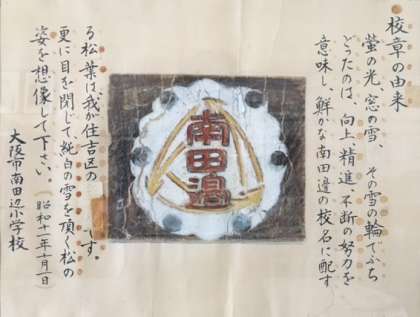 校章の由来
螢の光、窓の雪 その雪の輪でふち
どったのは、向上、精進、不断の努力を
意味し、鮮かな南田邊の校名に配す
南田邊
る松葉は我が住吉区の
です。
更に目を閉じて純白の雪を頂く松の
姿を想像して下さい。(昭和十一年十月一日)
大阪市南田辺小学校